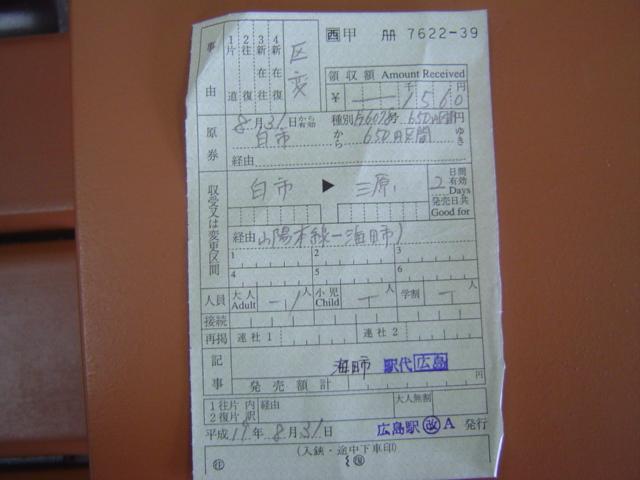 西 甲 冊 7622-39
事由
1片道 2往復 3新在往 4新在復
区変
領収額 Amount Received
千 円
¥ 1560
原券
8月31日から有効 種別 円
白市 から 650円区間 ゆき
経由
収受又は変更区間
白市 ▶ 三原
2 日間有効 Days
発売日共 Good for
経由 山陽本線―海田市)
1 2 3
4 5 6
人員 大人 Adult 1人 小児 Child 人 学割 人
接続
再掲 連社1 連社2
記事
海田市 駅代 広島
発売額計 円
1往片 2復片 内訳 経由 大人無割
平成19年8月31日 広島駅 改 A 発行
(入鋏・途中下車印)
往 復